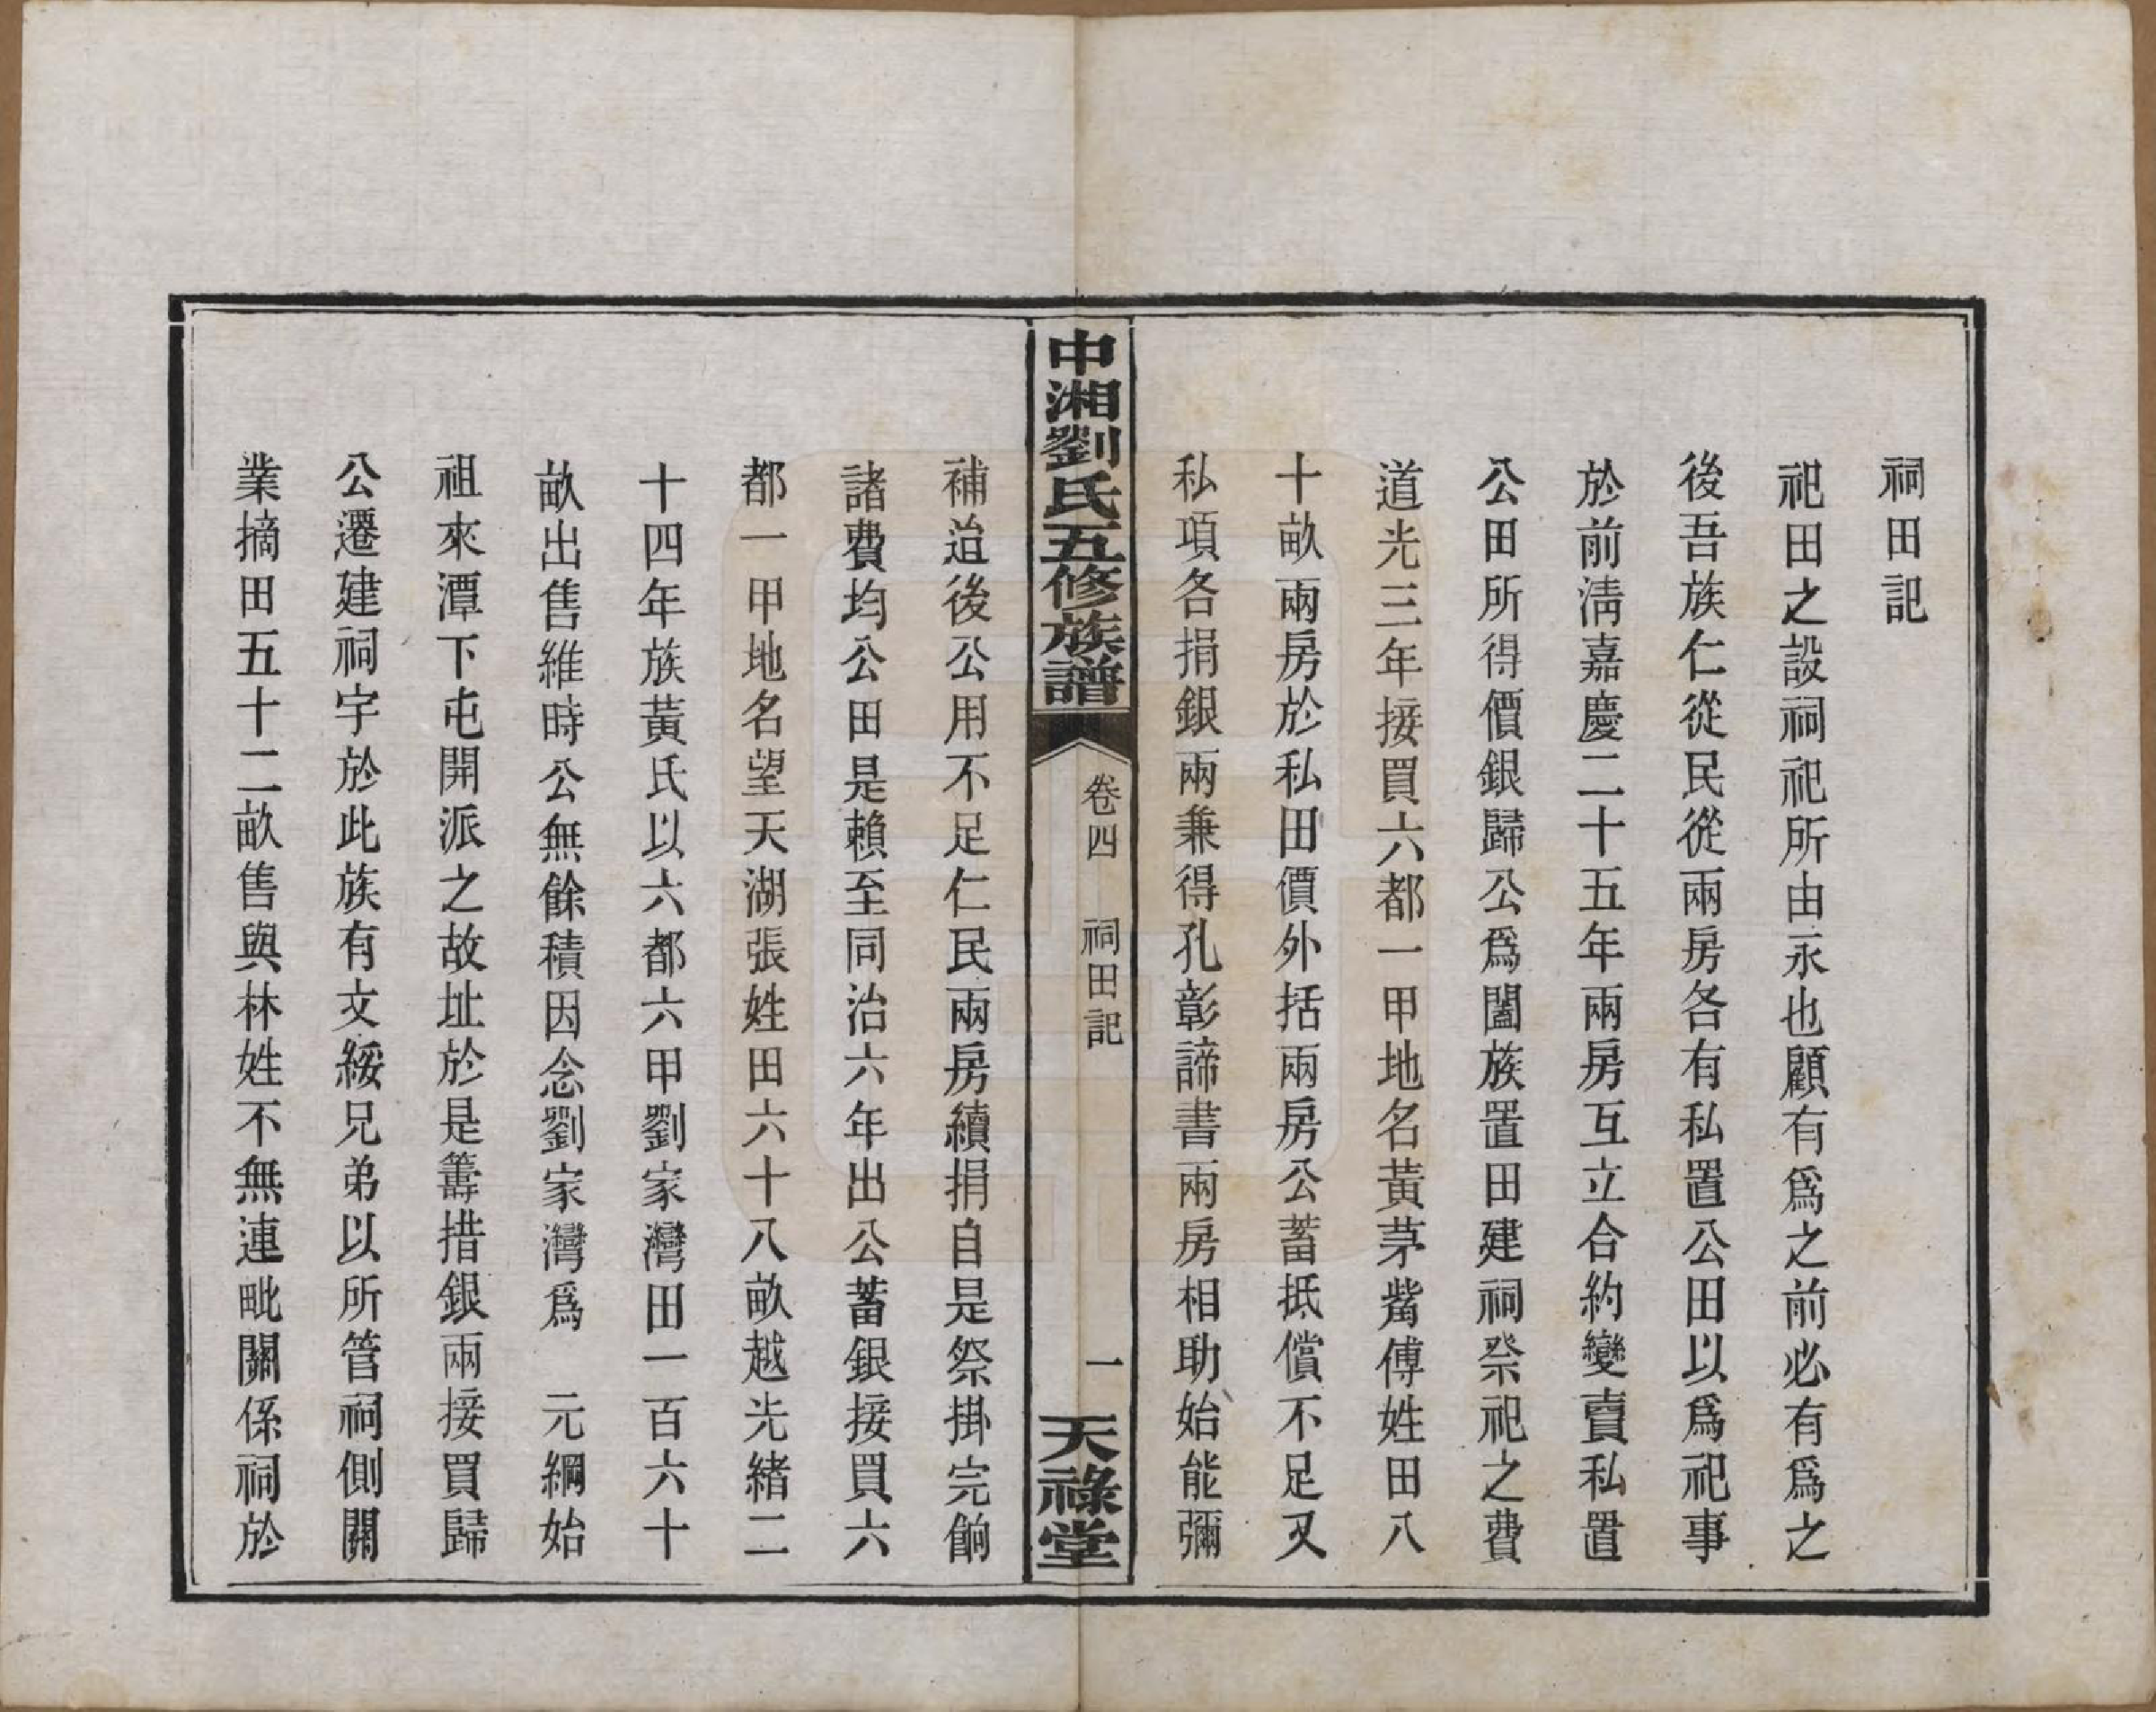 祠田記
祀田之設祠祀所由永也顧有爲之前必有爲之
後吾族仁從民從兩房各有私置公田以爲祀事
於前清嘉慶二十五年兩房互立合約變賣私置
公田所得價銀歸公爲闔族置田建祠祭祀之費
道光三年接買六都一甲地名黃茅觜傅姓田八
十畝兩房於私田價外括兩房公蓄抵償不足又
私項各捐銀兩兼得孔彰諦書兩房相助始能彌
中湘劉氏五修族譜
卷四 祠田記
一
天祿堂
補迨後公用不足仁民兩房續捐自是祭掛完餉
諸費均公田是賴至同治六年出公蓄銀接買六
都一甲地名望天湖張姓田六十八畝越光緒二
十四年族黃氏以六都六甲劉家灣田一百六十
畝出售維時公無餘積因念劉家灣爲 元綱始
祖來潭下屯開派之故址於是籌措銀兩接買歸
公遷建祠宇於此族有文綏兄弟以所管祠側關
業摘田五十二畝售與林姓不無連毗關係祠於